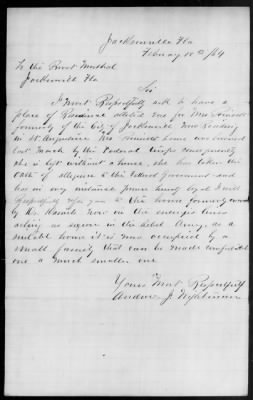 Jacksonville Fla
February 18th /64
To the Provost Marshal
Jacksonville Fla
Sir
I most Respectfully ask to have a
place of Residence allotted me for Mrs
formerly of the City of Jacksonville now Residing
in St Augustine her house was burned
last March by the Federal troops consequently
she is left without a home, she has taken the
oath of allegiance to the Federal Government and
has in my
Respectfully refer you to the house formerly owned
by now in the enemies lines
acting as in the Rebel Army, as a
suitable home it is now occupied by a
small family that can be made comfortable
in a much smaller one
Yours Most Respectfully
Andrew J. Wightman